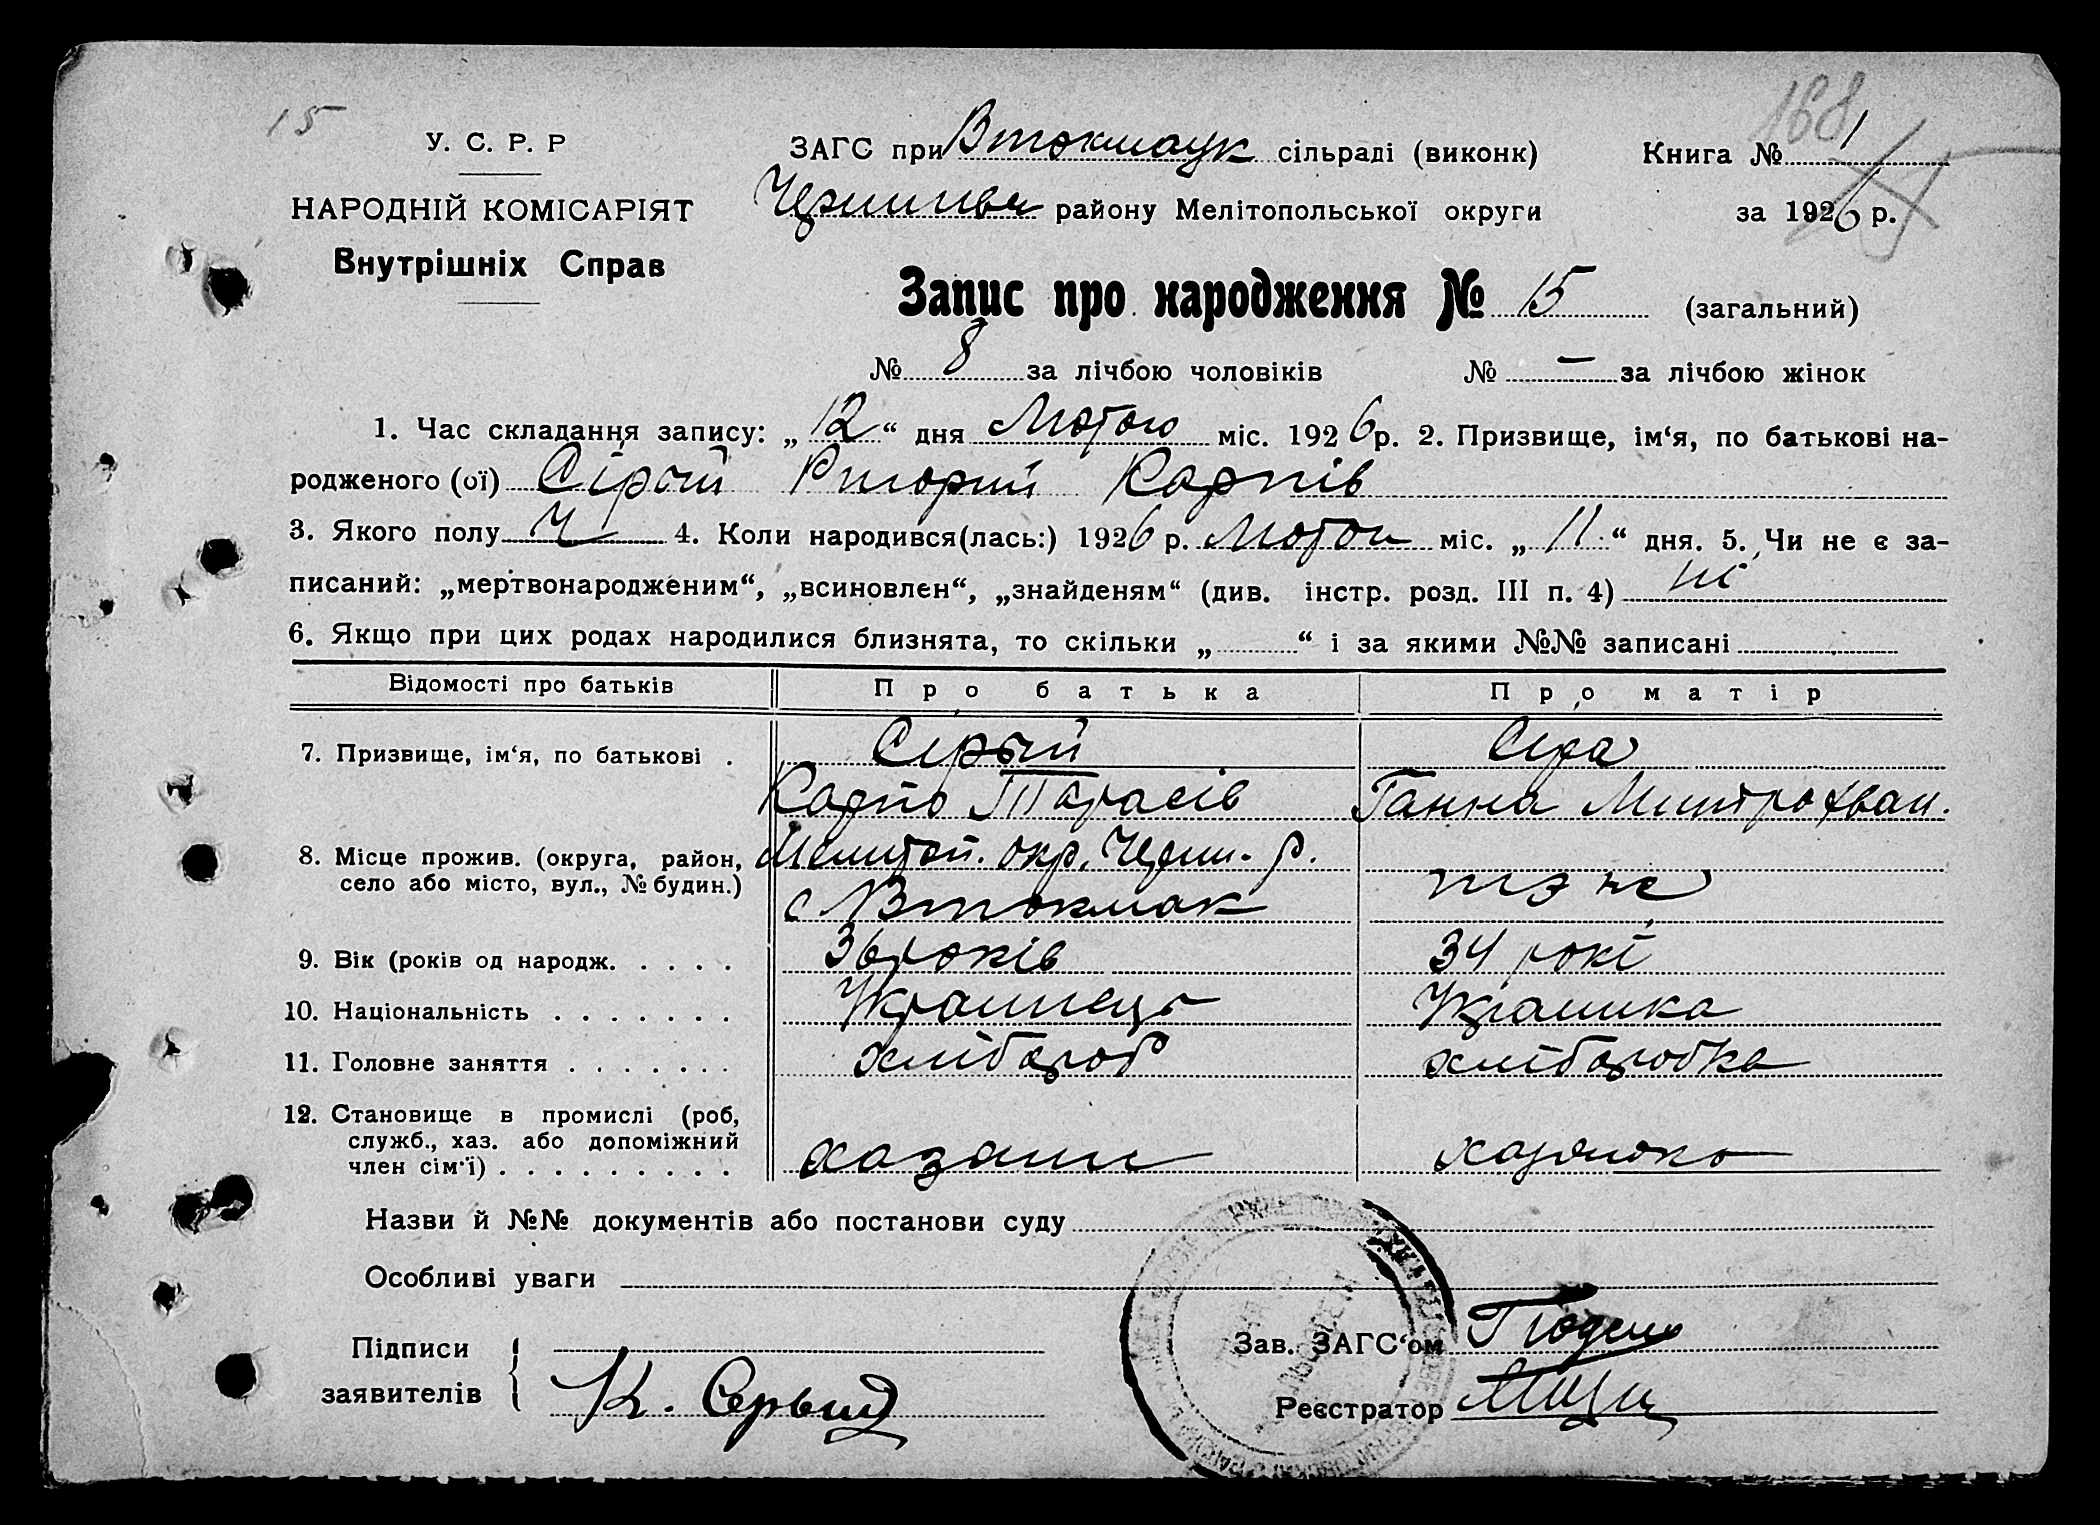 15
168
У. С. Р. Р
НАРОДНІЙ КОМІСАРІЯТ
Внутрішніх Справ
ЗАГС при Втокмацк сільраді (виконк)
Книга № 1
району Мелітопольської округи
за 1926 р.
Запис про народження № 15 (загальний)
№ 8 за лічбою чоловіків № — за лічбою жінок
1. Час складання запису: „12“ дня Лютого міс. 1926 р. 2. Призвище, ім‘я, по батькові на-
родженого (ої) Сірий Григорий Карпів
3. Якого полу Ч 4. Коли народився(лась:) 1926 р. Лютого міс. „11“ дня. 5. Чи не є за-
писаний: „мертвонародженим“, „всиновлен“, „знайденям“ (див. інстр. розд. III п. 4) ні
6. Якщо при цих родах народилися близнята, то скільки „ “ і за якими №№ записані
Відомості про батьків Про батька Про матір
7. Призвище, ім‘я, по батькові . Сірий Сіра
Карпо Тарасів Ганна Митрофван.
8. Місце прожив. (округа, район, Мелитоп. окр. Черни. р.
село або місто, вул., № будин.) с Втокмак
9. Вік (років од народж. . . . . 36 років 34 рокі
10. Національність . . . . . . . Украинець Украинка
11. Головне заняття . . . . . . . хлібороб хліборобка
12. Становище в промислі (роб,
служб., хаз. або допоміжний
член сім‘ї) . . . . . . . . . хазаин хазяйка
Назви й №№ документів або постанови суду
Особливі уваги
Підписи
заявителів
К. Серый
Зав. ЗАГС‘ом
Реєстратор